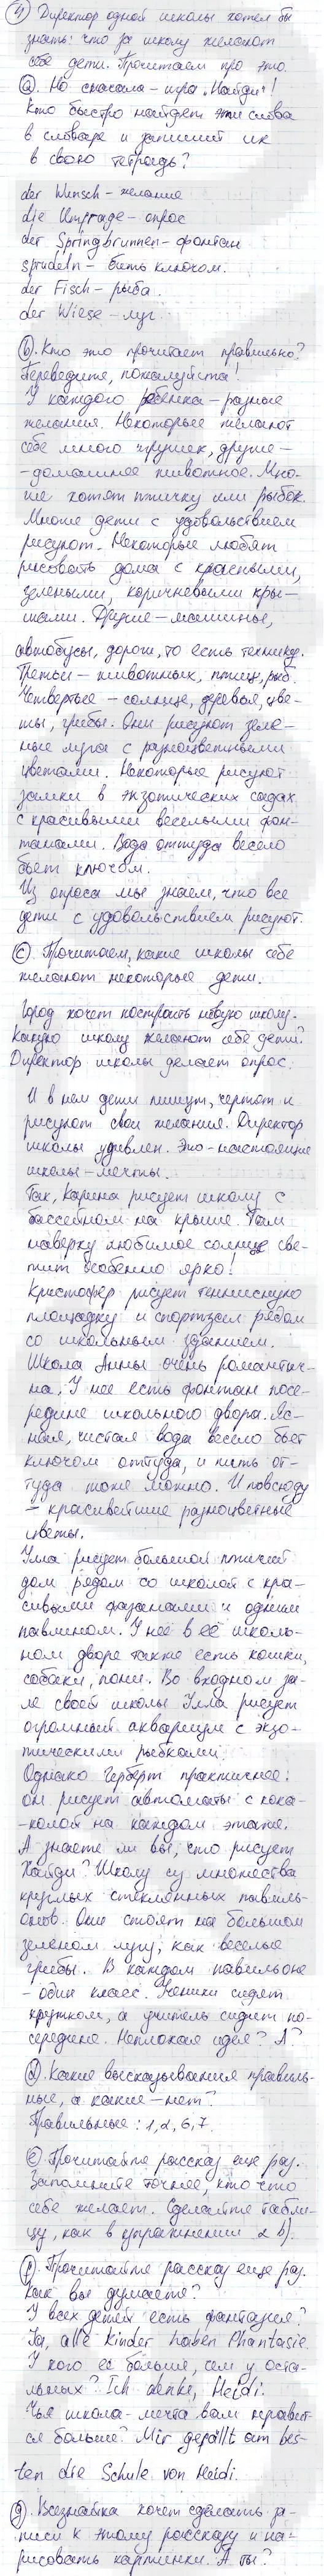 4) Директор одной школы хотел бы
знать: что за школу желают
себе дети. Прочитаем про это.
a). Но сначала – игра „Найди"!
Кто быстро найдет эти слова
в словаре и запишет их
в свою тетрадь?
der Wunsch – желание
die Umfrage – опрос
der Springbrunnen – фонтан
sprudeln – бить ключом.
der Fisch – рыба.
der Wiese – луг.
b). Кто это прочитает правильно?
Переведите, пожалуйста!
У каждого ребенка – разные
желания. Некоторые желают
себе много игрушек, другие –
- домашнее животное. Мно-
гие хотят птичку или рыбок.
Многие дети с удовольствием
рисуют. Некоторые любят
рисовать дома с красными,
зелеными, коричневыми кры-
шами. Другие – машины,
автобусы, дороги, то есть технику.
Третьи – животных, птиц, рыб.
Четвертые – солнце, деревья, цве-
ты, грибы. Они рисуют зеле-
ные луга с разноцветными
цветами. Некоторые рисуют
замки в экзотических садах
с красивыми веселыми фон-
танами. Вода оттуда весело
бьет ключом.
Из опроса мы знаем, что все
дети с удовольствием рисуют.
c) Прочитаем, какие школы себе
желают некоторые дети.
Город хочет построить новую школу.
Какую школу желают себе дети?
Директор школы делает опрос.
И в нем дети пишут, чертят и
рисуют свои желания. Директор
школы удивлен. Это – настоящие
школы – мечты.
Так, Карина рисует школу с
бассейном на крыше. Там
наверху любимое солнце све-
тит особенно ярко!
Кристофер рисует теннисную
площадку и спортзал рядом
со школьным зданием.
Школа Анны очень романтич-
на. У нее есть фонтан посе-
редине школьного двора. Яс-
ная, чистая вода весело бьет
ключом оттуда, и пить от-
туда тоже можно. И повсюду
– красивейшие разноцветные
цветы.
Улла рисует большой птичий
дом рядом со школой с кра-
сивыми фазанами и одним
павлином. У неё в её школь-
ном дворе также есть кошки,
собаки, пони. Во входном за-
ле своей школы Улла рисует
огромный аквариум с экзо-
тическими рыбками.
Однако Герберт практичнее:
он рисует автоматы с кока-
-колой на каждом этаже.
А знаете ли вы, что рисует
Хайди? Школу из множества
круглых стеклянных павиль-
онов. Они стоят на большом
зеленом лугу, как веселые
грибы. В каждом павильоне
– один класс. Ученики сидят
кружком, а учитель сидит по-
середине. Неплохая идея? А?
d). Какие высказывания правиль-
ные, а какие – нет?
Правильные: 1, 2, 6, 7.
e) Прочитайте рассказ еще раз.
Запомните точнее, кто что
себе желает. Сделайте табли-
цу, как в упражнении 2 b).
f). Прочитайте рассказ еще раз.
Как вы думаете?
У всех детей есть фантазия?
Ja, alle Kinder haben Phantasie.
У кого ее больше, чем у оста-
льных? Ich denke, Heidi.
Чья школа – мечта вам нравит-
ся больше? Mir gefällt am bes-
ten die Schule von Heidi.
g). Всезнайка хочет сделать за-
писи к этому рассказу и на-
рисовать картинки. А ты?